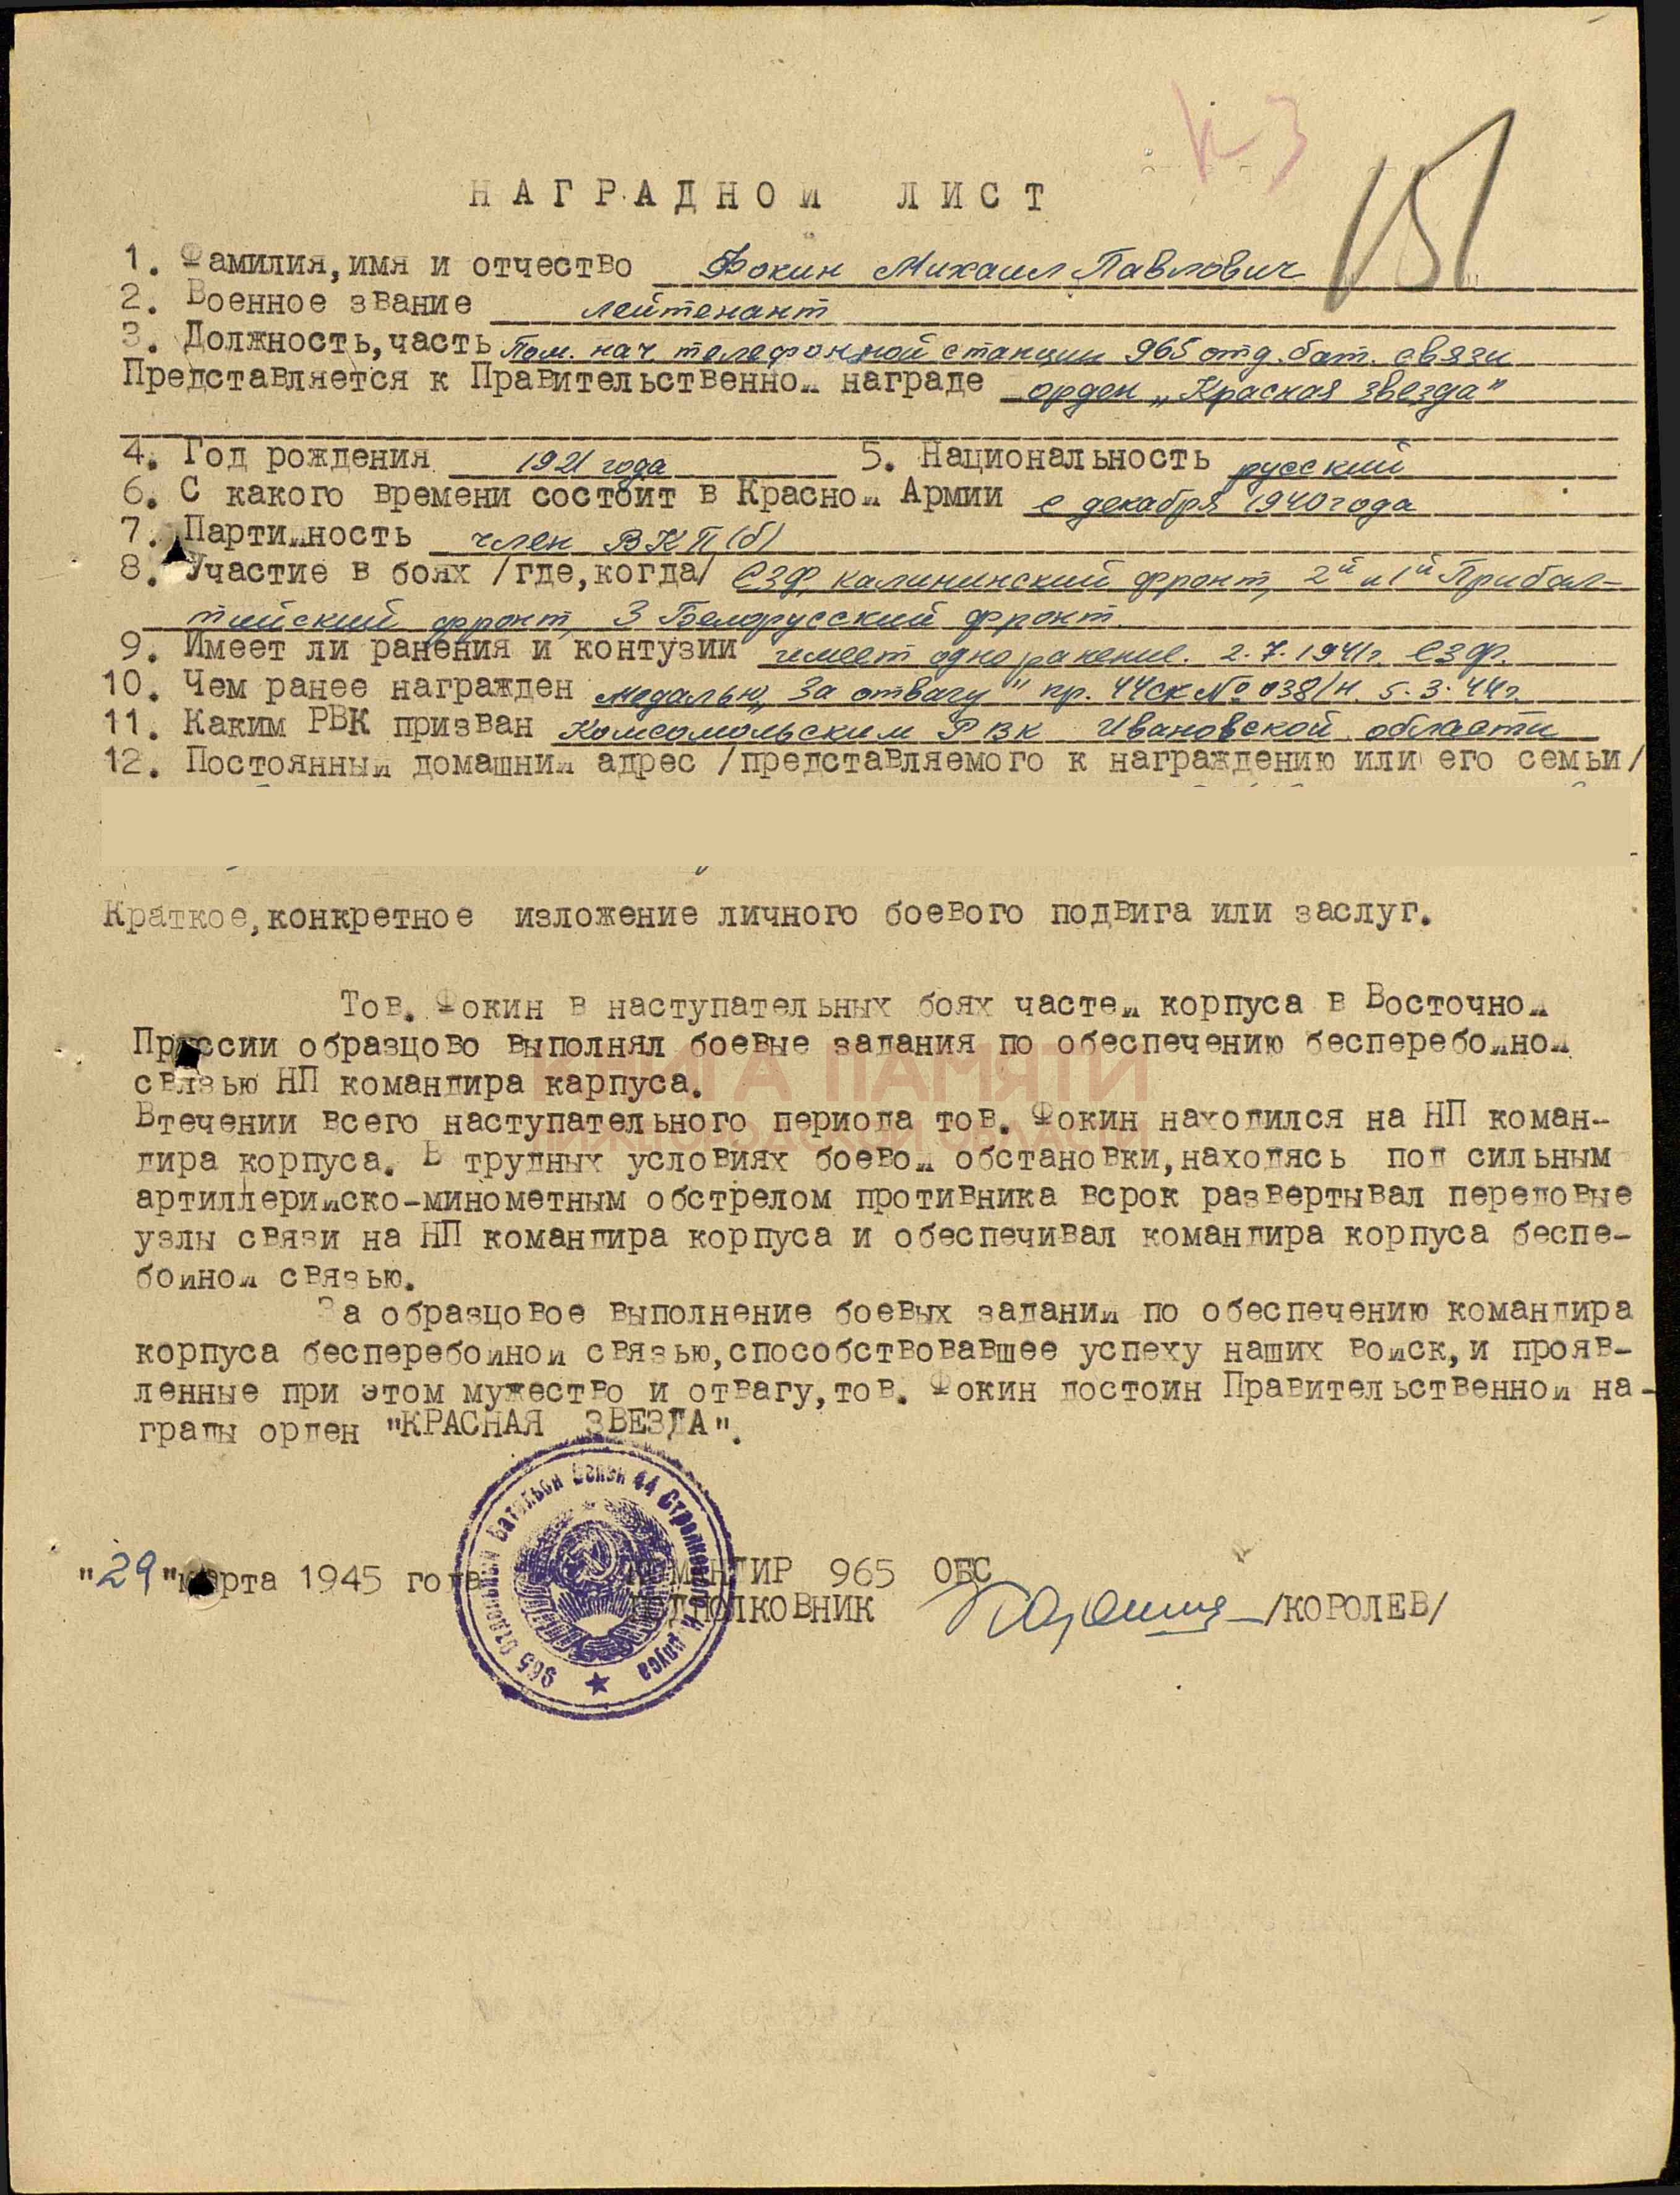 К-3
151
НАГРАДНОЙ ЛИСТ
1. Фамилия,имя и отчество Фокин Михаил Павлович
2. Военное звание лейтенант
3. Должность,часть Пом. нач телефонной станции 965 отд. бат. связи
Представляется к Правительственной награде орден „Красная звезда"
4. Год рождения 1921 года 5. Национальность русский
6. С какого времени состоит в Красной Армии с декабря 1940 года
7. Партийность член ВКП(б)
8. Участие в боях /где,когда/ СЗФ, Калининский фронт, 2й и 1й Прибал-
тийский фронт, 3 Белорусский фронт.
9. Имеет ли ранения и контузии имеет одно ранение. 2.7.1941г. СЗФ.
10. Чем ранее награжден медалью „За отвагу" пр. 44ск № 038/н 5.3.44г.
11. Каким РВК призван Комсомольским РВК Ивановской области
12. Постоянный домашний адрес /представляемого к награждению или его семьи/
Краткое,конкретное изложение личного боевого подвига или заслуг.
Тов. Фокин в наступательных боях частей корпуса в Восточной
Пруссии образцово выполнял боевые задания по обеспечению бесперебойной
связью НП командира карпуса.
Втечении всего наступательного периода тов. Фокин находился на НП коман-
дира корпуса. В трудных условиях боевой обстановки,находясь под сильным
артиллерийско-минометным обстрелом противника всрок развертывал передовые
узлы связи на НП командира корпуса и обеспечивал командира корпуса беспе-
бойной связью.
За образцовое выполнение боевых заданий по обеспечению командира
корпуса бесперебойной связью,способствовавшее успеху наших войск,и прояв-
ленные при этом мужество и отвагу,тов. Фокин достоин Правительственной на-
грады орден "КРАСНАЯ ЗВЕЗДА".
965 Отдельный Батальон Связи 44 Стрелкового Корпуса
"29"марта 1945 года КОМАНДИР 965 ОБС
ПОДПОЛКОВНИК /КОРОЛЕВ/
КНИГА ПАМЯТИ